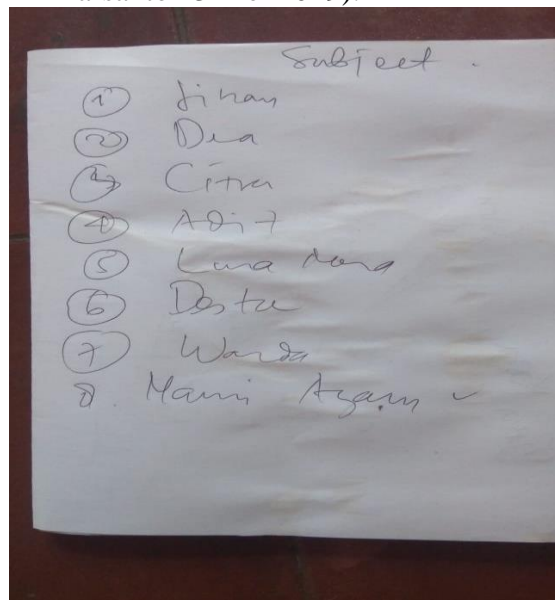 Subject .
① Jihan
② Dea
③ Citra
④ Adit
⑤ Luna Nona
⑥ Desta
⑦ Warda
8. Mami Ayam